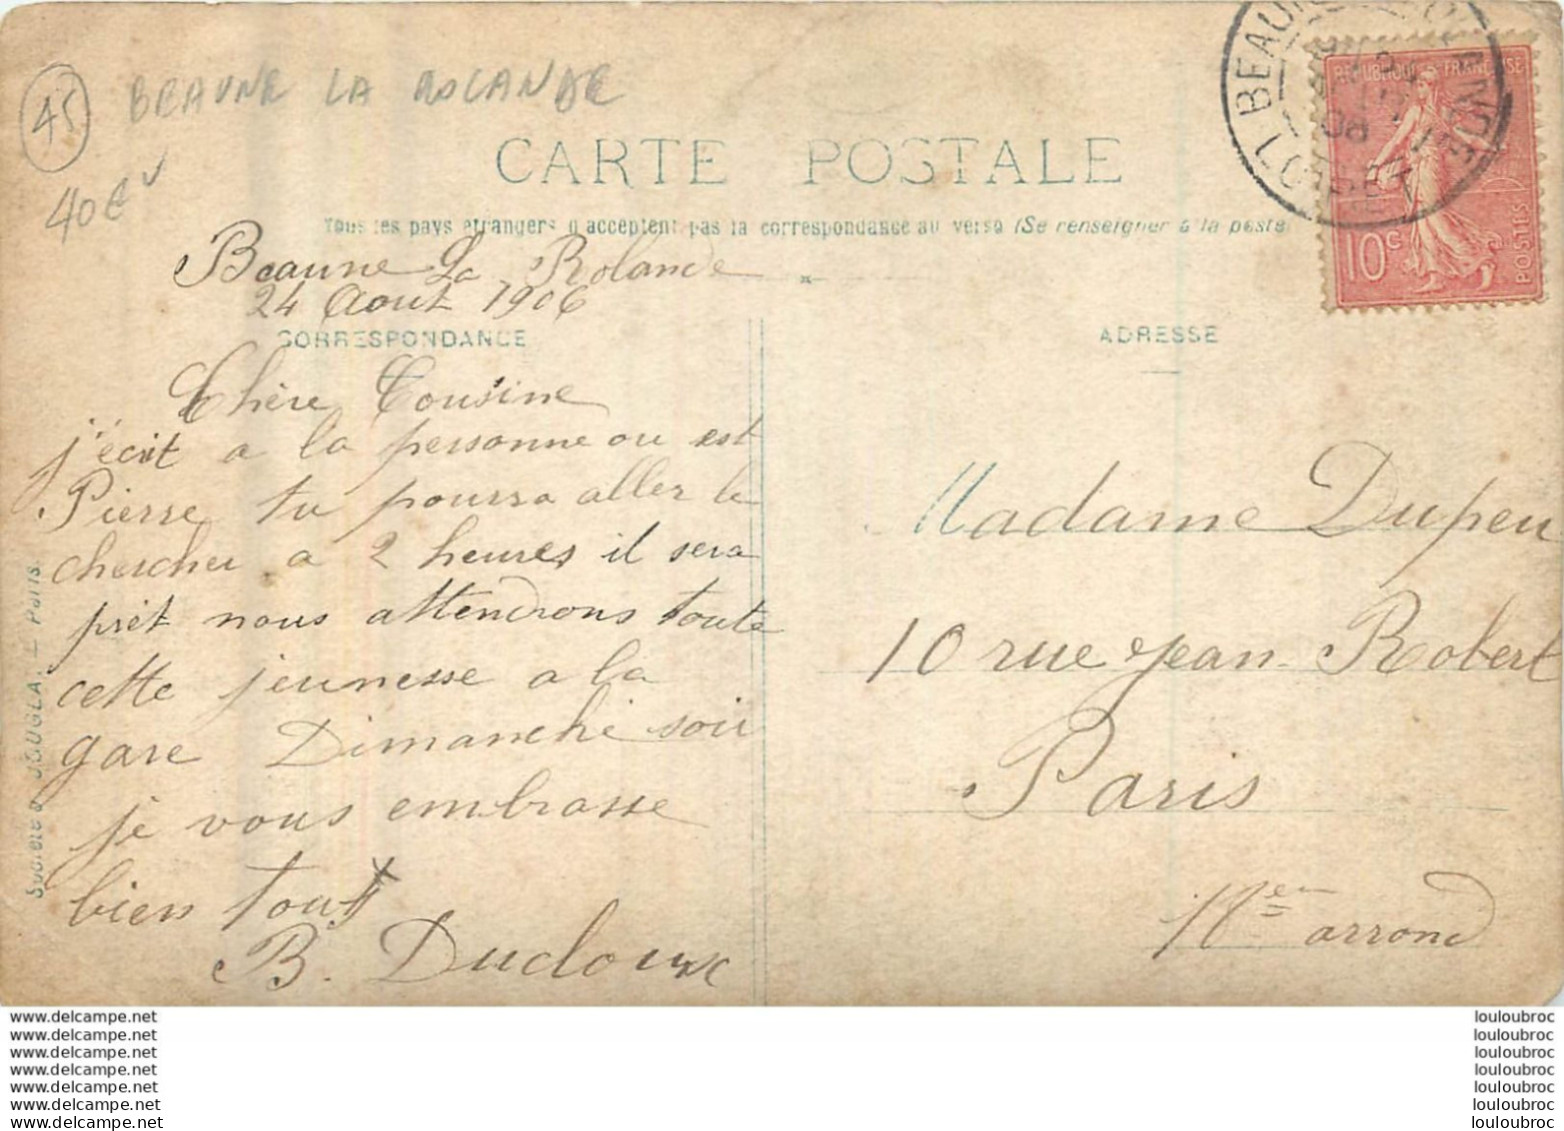 45
BEAUNE LA ROLANDE
40€
CARTE POSTALE
Tous les pays étrangers n'acceptent pas la correspondance au verso (Se renseigner à la poste)
BEAUNE LA ROLANDE
LOIRET
REPUBLIQUE FRANÇAISE
10c
POSTES
Beaune La Rolande
24 Aout 1906
CORRESPONDANCE
Chère Cousine
j'écrit a la personne ou est
Pierre tu pourra aller le
chercher a 2 heures il sera
prêt nous attendrons toute
cette jeunesse a la
gare Dimanche soir
je vous embrasse
bien tous
B. Ducloux
Société JOUGLA. – Paris
ADRESSE
Madame Dupeu
10 rue Jean-Robert
Paris
arrond
www.delcampe.net
www.delcampe.net
www.delcampe.net
www.delcampe.net
www.delcampe.net
www.delcampe.net
www.delcampe.net
louloubroc
louloubroc
louloubroc
louloubroc
louloubroc
louloubroc
louloubroc